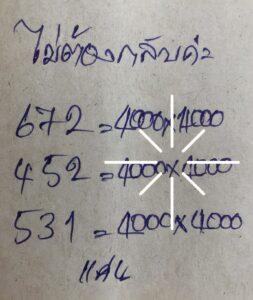 ไม่ต้องกลับค่ะ
672=4000×4000
452=4000×4000
531=4000×4000